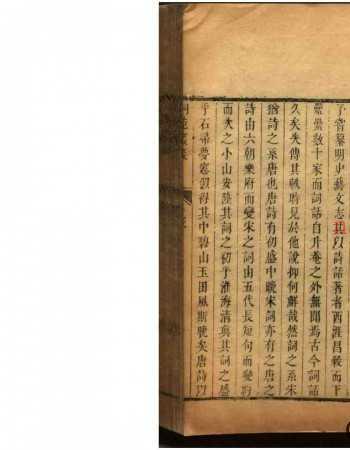 予嘗纂明史藝文志其以詩話著者西涯昌穀而下
纍纍數十家而詞話自升庵之外無聞焉古今詞話
久矣失傳其軼時見於他說抑何鮮哉然詞之系宋
猶詩之系唐也唐詩有初盛中晚宋詞亦有之唐之
詩由六朝樂府而變宋之詞由五代長短句而變約
而次之小山安陸其詞之初乎淮海清真其詞之盛
乎石帚夢窗似得其中碧山玉田風斯晚矣唐詩以
詞苑叢談
序